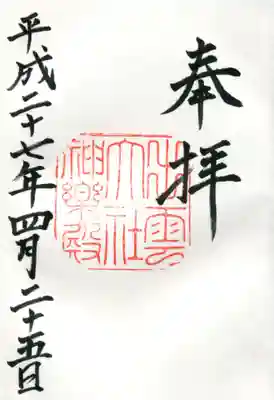 奉拝
出雲
大社
神樂殿
平成二十七年四月二十五日